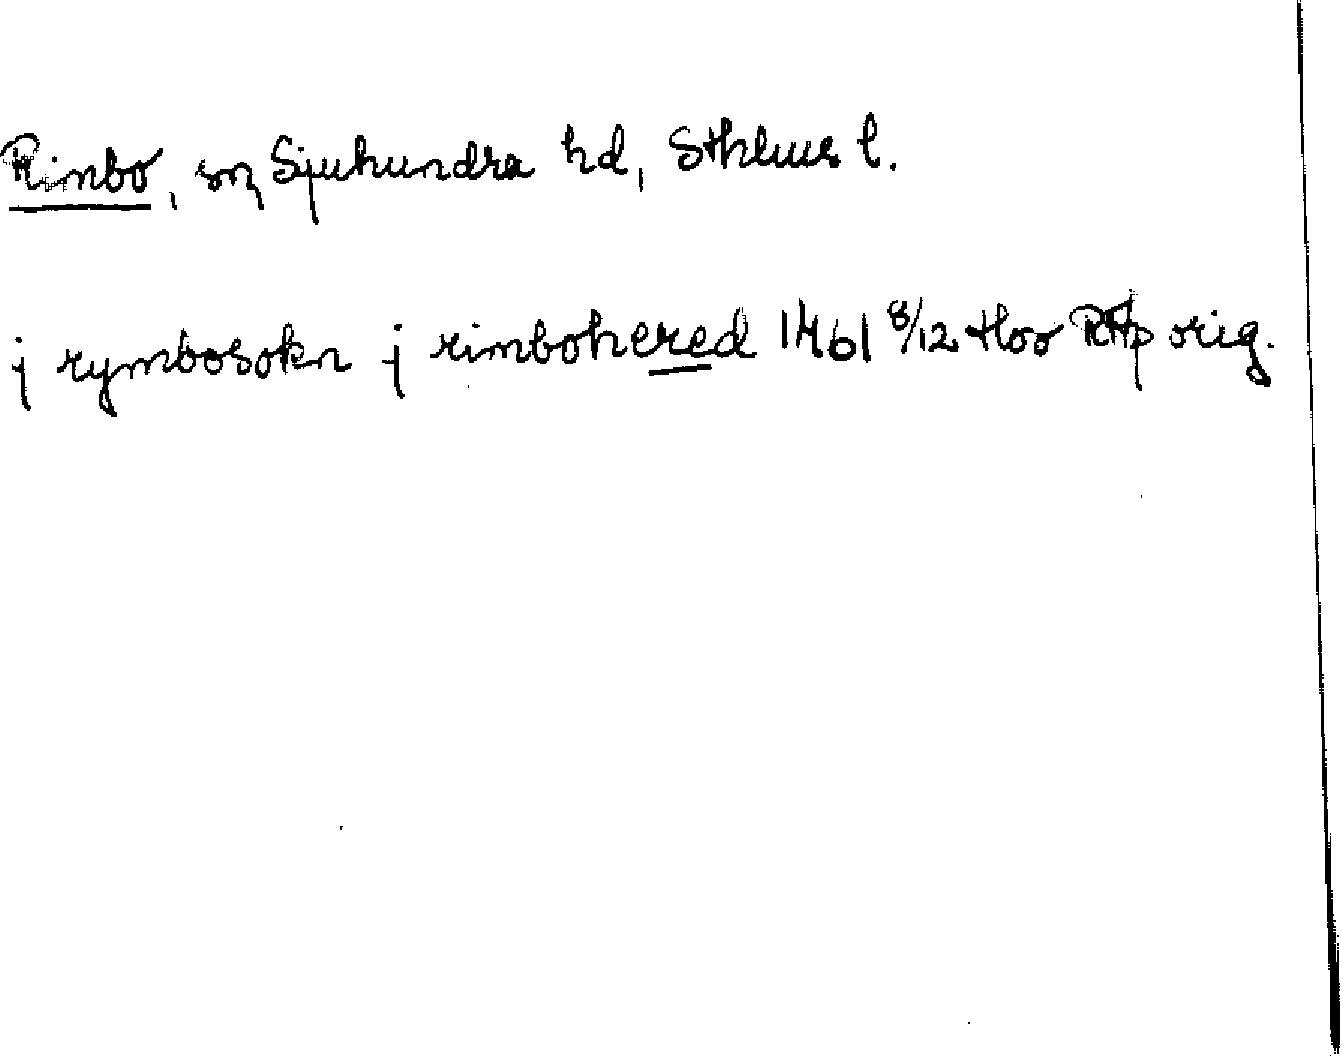 Rimbo, sn, Sjuhundra hd, Sthlms l.
j rymbosokn j rimbohered 1461 8/12 Hoo RAp orig.